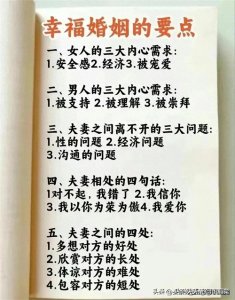 幸福婚姻的要点
一、女人的三大内心需求:
1.安全感2.经济3.被宠爱
二、男人的三大内心需求:
1.被支持 2.被理解 3.被崇拜
三、夫妻之间离不开的三大问题:
1.性的问题 2.经济问题
3.沟通的问题
四、夫妻相处的四句话:
1对不起,我错了 2.我信你
3.我以你为荣为傲4.我爱你
五、夫妻之间的四处:
1.多想对方的好处
2.欣赏对方的长处
3.体谅对方的难处
4.包容对方的短处